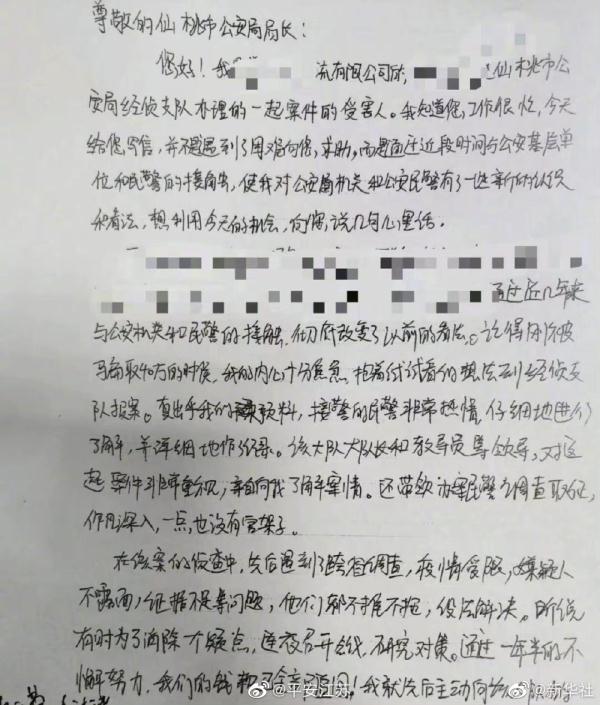 尊敬的仙桃市公安局局长：
您好！我 流有限公司 仙桃市公
安局经侦支队办理的一起案件的受害人。我知道您工作很忙，今天
给您写信，并不是遇到了困难向您求助，而是通过近段时间与公安基层单
位和民警的接触，使我对公安局机关和公安民警有了一些新的认识
和看法，想利用今天的机会，向您说几句心里话。
通过近几年来
与公安机关和民警的接触，彻底改变了以前的看法。记得刚被
骗取40万的时候，我的内心十分焦急，抱着试试看的想法到经侦支
队报案。真出乎我的预料，接警的民警非常热情，仔细地进行
了解，并详细地作记录。该大队大队长和教导员等领导，对这
起案件非常重视，亲自向我了解案情。还带领办案民警去调查取证，
作风深入，一点也没有官架子。
在该案的侦查中，先后遇到了跨省调查，疫情受限，嫌疑人
不露面，证据不足等问题，他们都不推不拖，设法解决。听说
有时为了消除一个疑点，连夜召开会议，研究对策。通过一年半的不
懈努力，我们的钱 追回！我就先后主动向
@平安江苏 @新华社